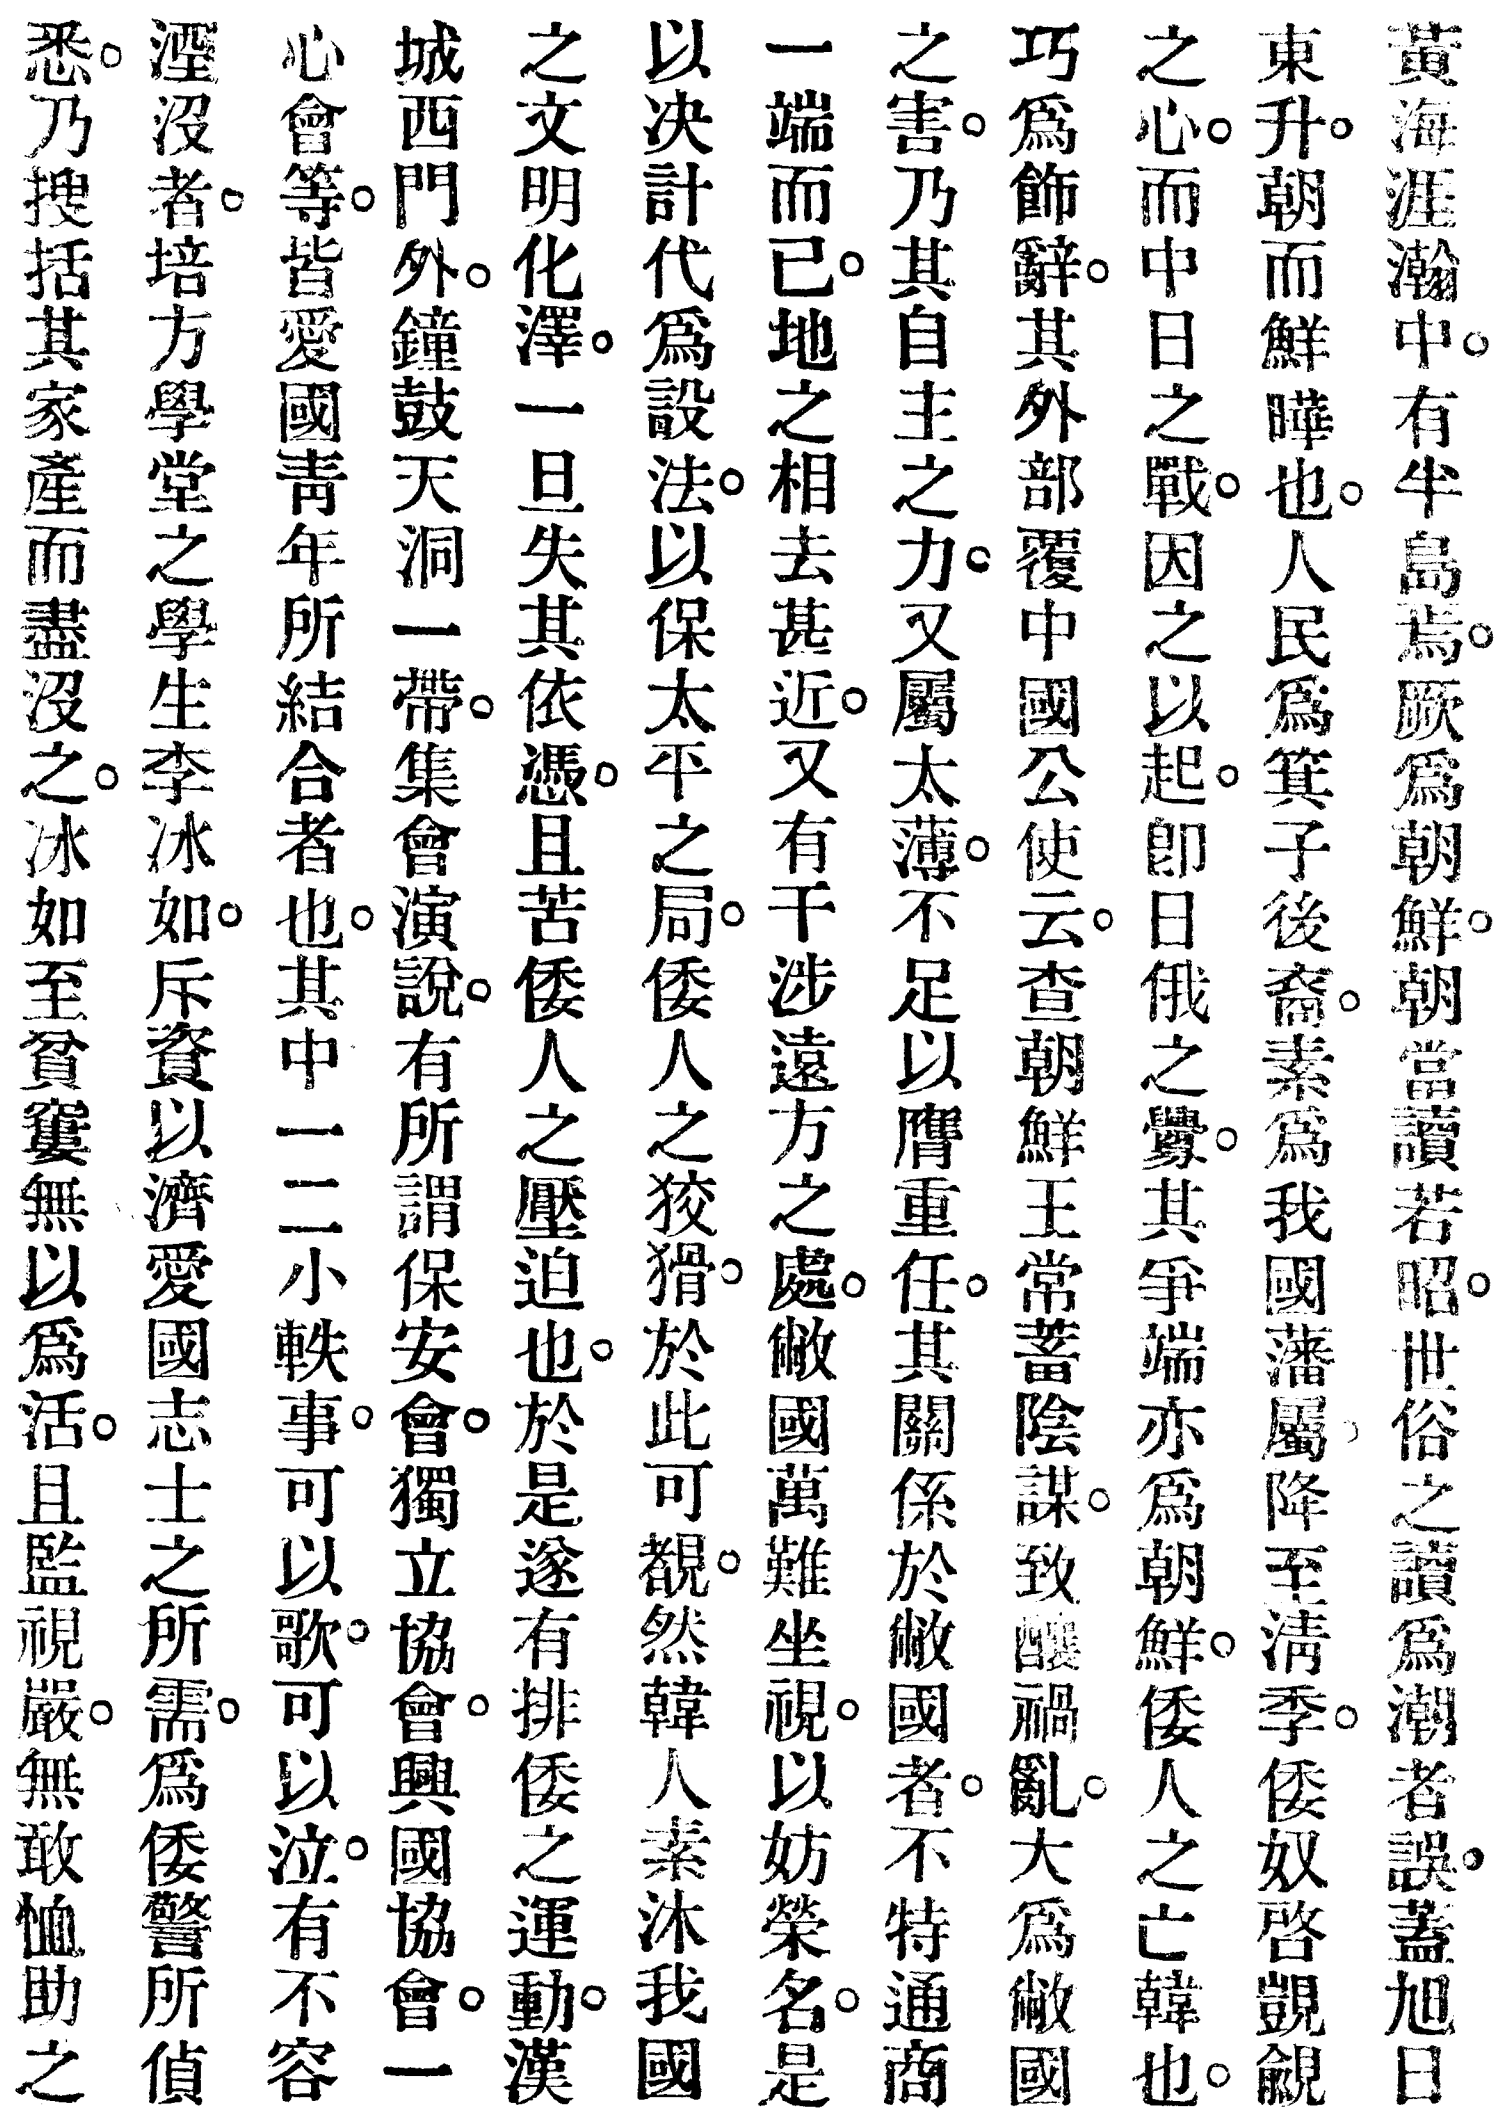 黃海涯瀚中。有半島焉。厥爲朝鮮。朝當讀若昭。世俗之讀爲潮者誤。蓋旭日
東升。朝而鮮曄也。人民爲箕子後裔。素爲我國藩屬。降至淸季。倭奴啓覬覦
之心。而中日之戰。因之以起。卽日俄之釁。其爭端亦爲朝鮮。倭人之亡韓也。
巧爲飾辭。其外部覆中國公使云。查朝鮮王常蓄陰謀。致釀禍亂。大爲敝國
之害。乃其自主之力。又屬太薄。不足以膺重任。其關係於敝國者。不特通商
一端而已。地之相去甚近。又有干涉遠方之處。敝國萬難坐視。以妨榮名。是
以决計代爲設法。以保太平之局。倭人之狡猾。於此可覩。然韓人素沐我國
之文明化澤。一旦失其依憑。且苦倭人之壓迫也。於是遂有排倭之運動。漢
城西門外。鐘鼓天洞一帶。集會演說。有所謂保安會。獨立協會。興國協會。一
心會等。皆愛國靑年所結合者也。其中一二小軼事。可以歌。可以泣。有不容
湮沒者。培方學堂之學生李冰如。斥資以濟愛國志士之所需。爲倭警所偵
悉。乃搜括其家產而盡沒之。冰如至貧窶無以爲活。且監視嚴。無敢恤助之